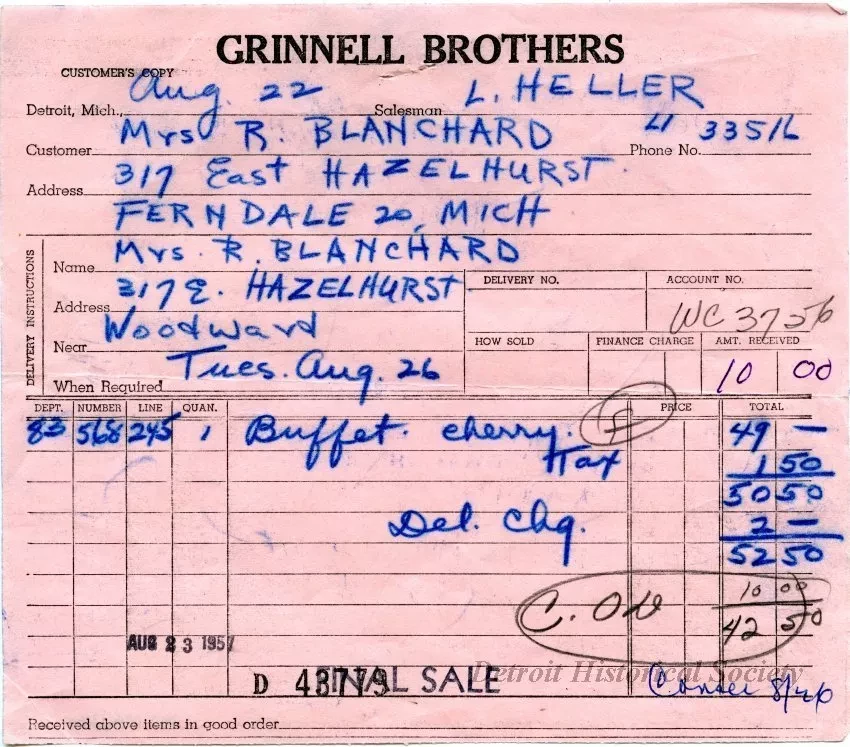 GRINNELL BROTHERS
CUSTOMER'S COPY
Detroit, Mich., Aug. 22 Salesman L. HELLER
Customer Mrs R. BLANCHARD Phone No. LI 33516
Address 317 East HAZELHURST.
FERNDALE 20, MICH
DELIVERY INSTRUCTIONS
Name Mrs. R. BLANCHARD
Address 317 E. HAZELHURST DELIVERY NO. ACCOUNT NO.
WC 3756
Near Woodward HOW SOLD FINANCE CHARGE AMT. RECEIVED
When Required Tues. Aug. 26 10 00
DEPT. NUMBER LINE QUAN. PRICE TOTAL
83 568 245 1 Buffet. cherry. F 49 —
Tax 1 50
50 50
Del. Chg. 2 —
52 50
10 00
C.OD 42 50
AUG 23 1957
D 43779 FINAL SALE
Detroit Historical Society
8/26
Received above items in good order